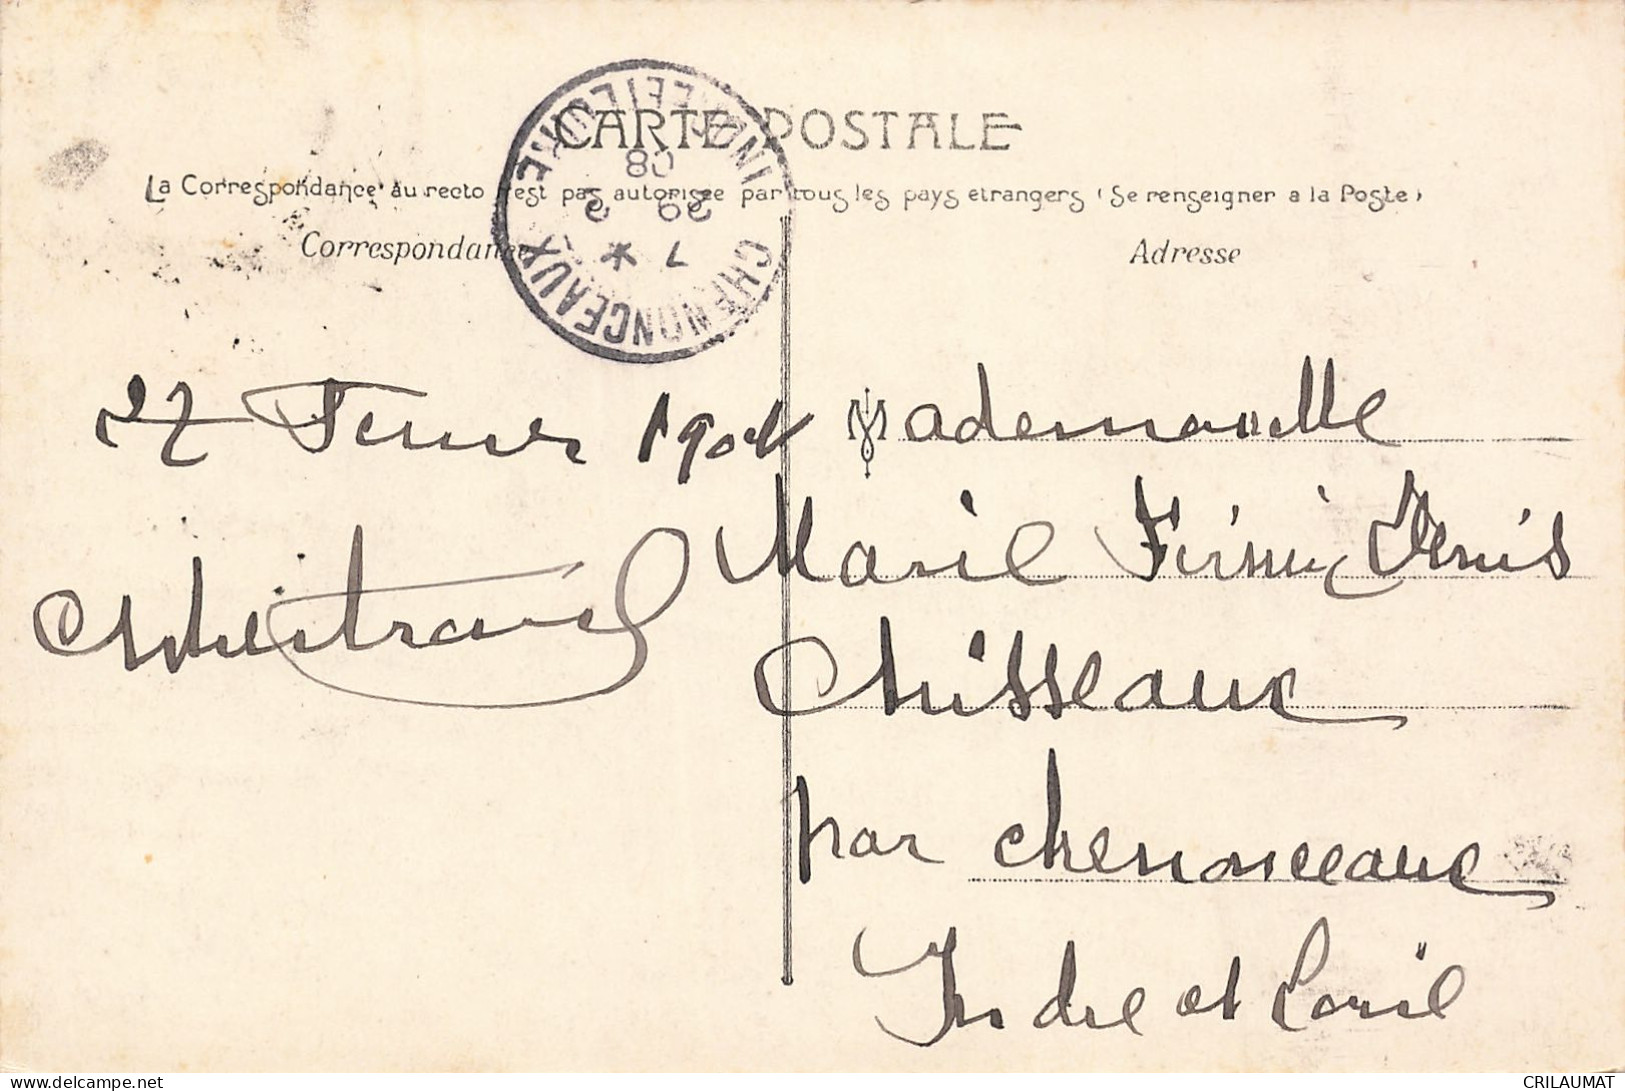 CARTE POSTALE
La Correspondance au recto n'est pas autorisée par tous les pays etrangers (Se renseigner a la Poste)
Correspondance
Adresse
CHENONCEAUX
INDRE ET LOIRE
7 *
29 2
08
27 Fevrier
Mademoiselle
Marie Denis
Chisseaux
par chenonceaux
Indre et Loire
https://www.delcampe.net
CRILAUMAT